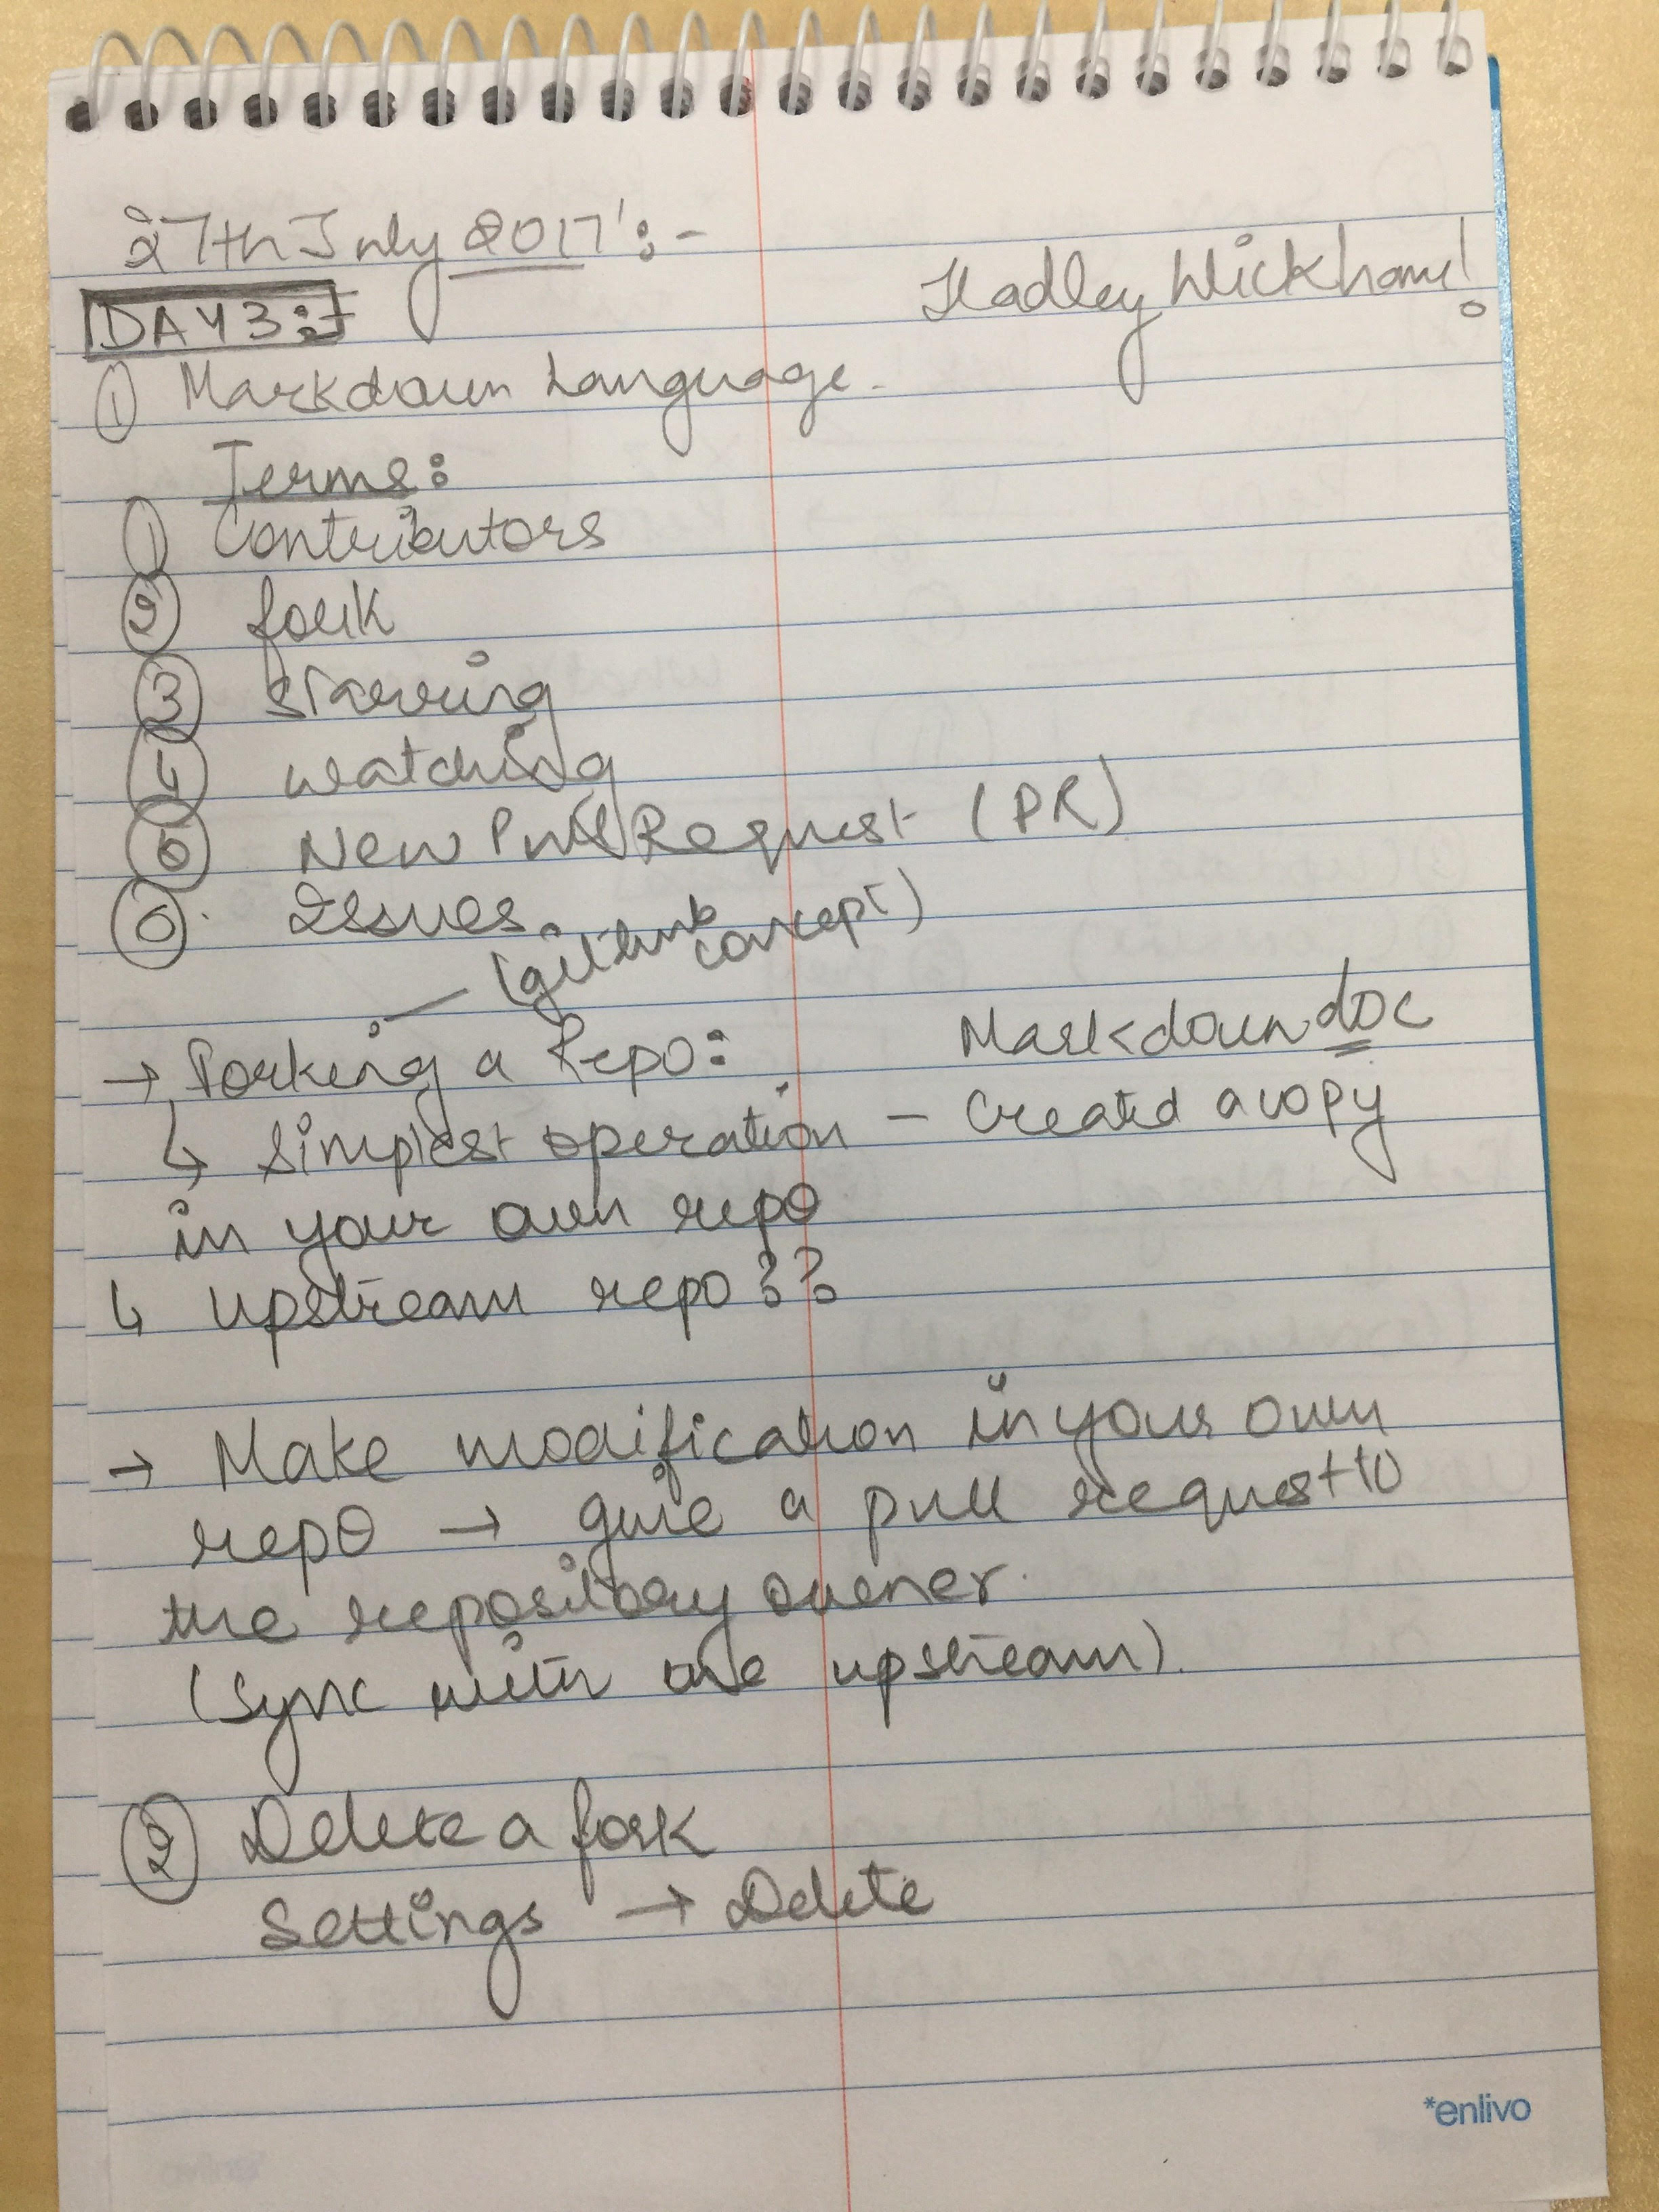 27th July 2017':-
Hadley Wickham!
DAY 3:-
① Markdown Language.
Terms:
① Contributors
② fork
③ starring
④ watching
⑤ New Pull Request (PR)
⑥ Issues
(github concept)
→ Forking a Repo:
Markdown doc
↳ Simplest operation - Created a copy
in your own repo
↳ upstream repo??
→ Make modification in your own
repo → give a pull request to
the repository owner.
(Sync with the upstream).
② Delete a fork
Settings → Delete
*enlivo